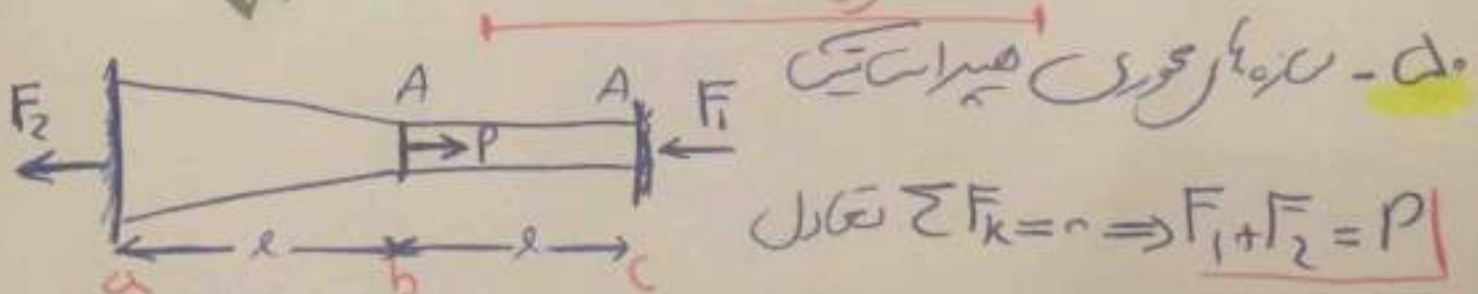 ۵۰ - سازه‌های محوری هیپراستاتیک
F₂ A A F₁
P
تعادل ΣFₓ = ۰ ⇒ F₁ + F₂ = P
l l
a b c